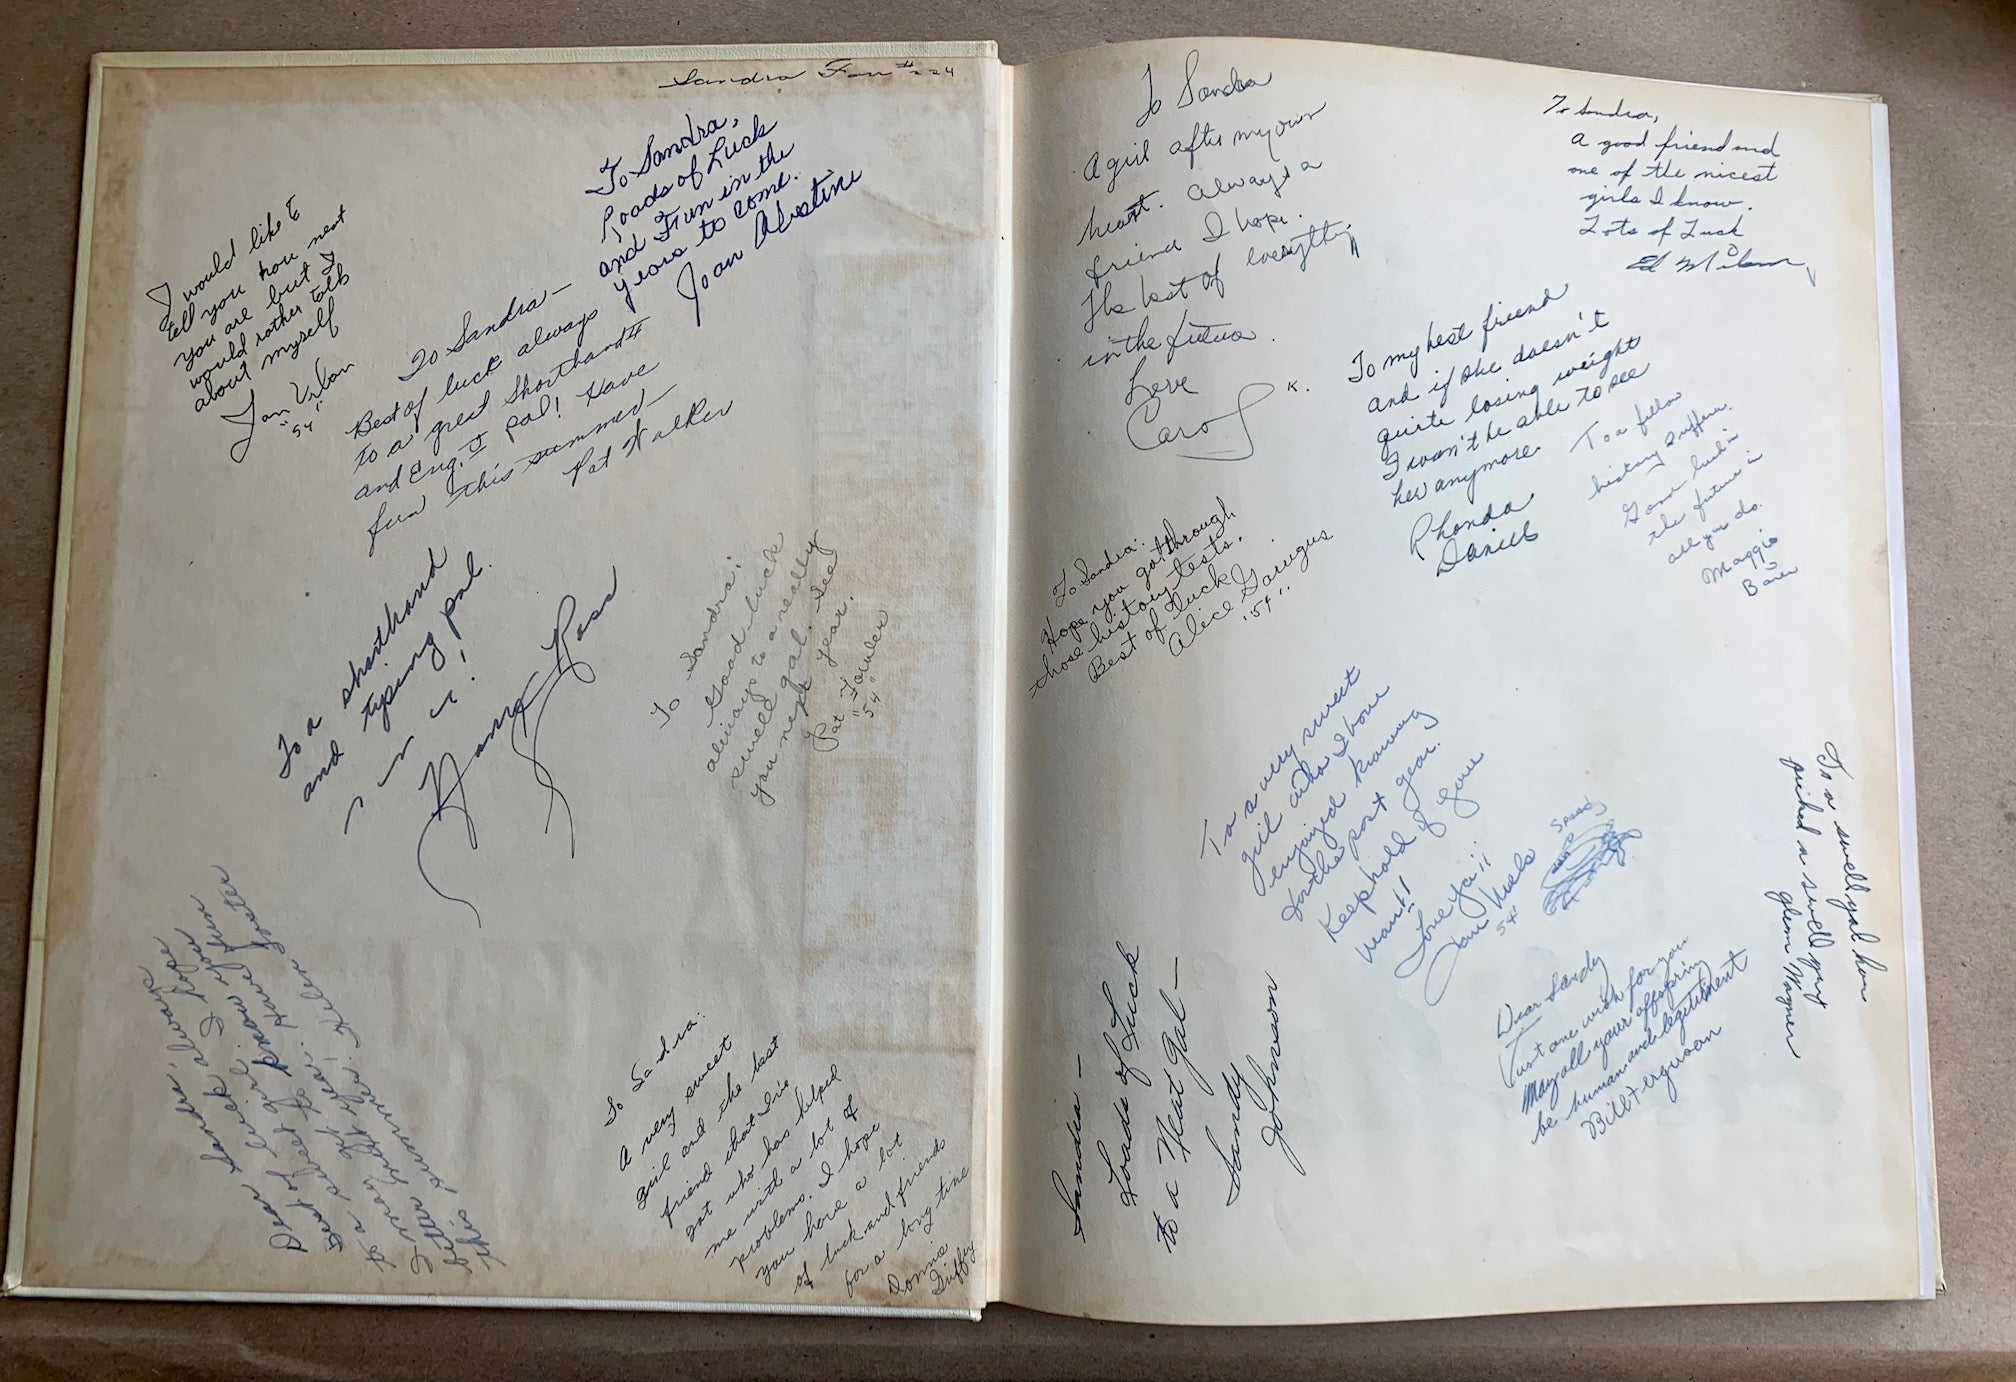 Sandra #224
To Sandra,
Loads of Luck
and Fun in the
years to come.
Joan
I would like to
tell you how neat
you are but I
would rather talk
about myself
Jan Urban
"54"
To Sandra—
Best of luck always
to a great Shorthand II
and Eng. II pal! Have
fun this summer—
Pat Walker
To a shorthand
and typing pal.
!
Ross
To Sandra:
Good luck
always to a really
swell gal. See
you next year.
Pat Fowler
"54"
Dear Sandra,
Best of luck always
to a sweet girl. I hope
I may get to know you
better next year. Have fun
this summer.
To Sandra:
A very sweet
girl and the best
friend that I've
got who has helped
me with a lot of
problems. I hope
you have a lot
of luck and friends
for a long time
Donnie
Griffey
To Sandra
A girl after my own
heart. Always a
friend I hope.
The best of everything
in the future.
Love
Carol K.
To Sandra,
A good friend and
one of the nicest
girls I know.
Lots of Luck
Ed
To my best friend
and if she doesn't
quite losing weight
I won't be able to see
her anymore.
Rhonda
Daniels
To a fellow
history sufferer.
Good luck in
the future in
all you do.
Maggie
To Sandra:
Hope you got through
those history tests.
Best of Luck
Alice Garigus
"54"
To a very sweet
girl who I have
enjoyed knowing
for the past year.
Keep hold of
want!!
Love ya!!
Jan
54'
Speedy
To a swell gal from
period a swell guy
Glenn Magner
Dear Sandy
Just one wish for you
May all your offspring
be human and legitiment
Bill Ferguson
Sandra—
Loads of Luck
to a Neat Gal—
Sandy
Johnson